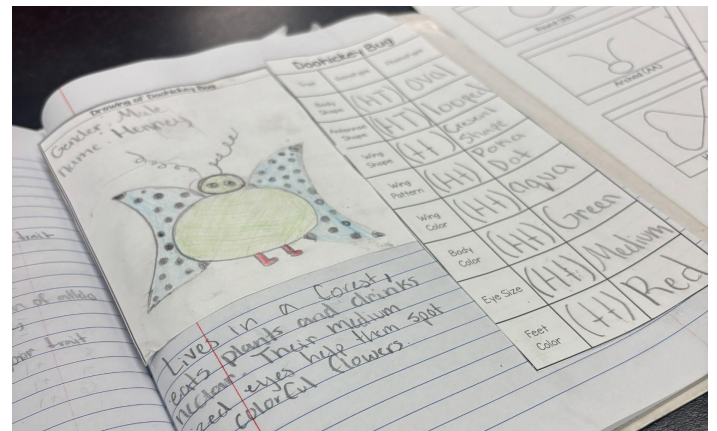 Drawing of Doohickey Bug
Gender: Male
name: Henney
Lives in a forest,
eats plants and drinks
nectar. Their medium
zed eyes help them spot
colorful flowers.
Doohickey Bug
Trait
Body Shape (HT) oval
Antennae Shape (HT) looped
Wing Shape (Ht) Cresent Shape
Wing Pattern (Ht) Polka Dot
Wing Color (Ht) aqua
Body Color (Ht) Green
Eye Size (Ht) Medium
Feet Color (Ht) Red
Arched (AA)
trait
trait